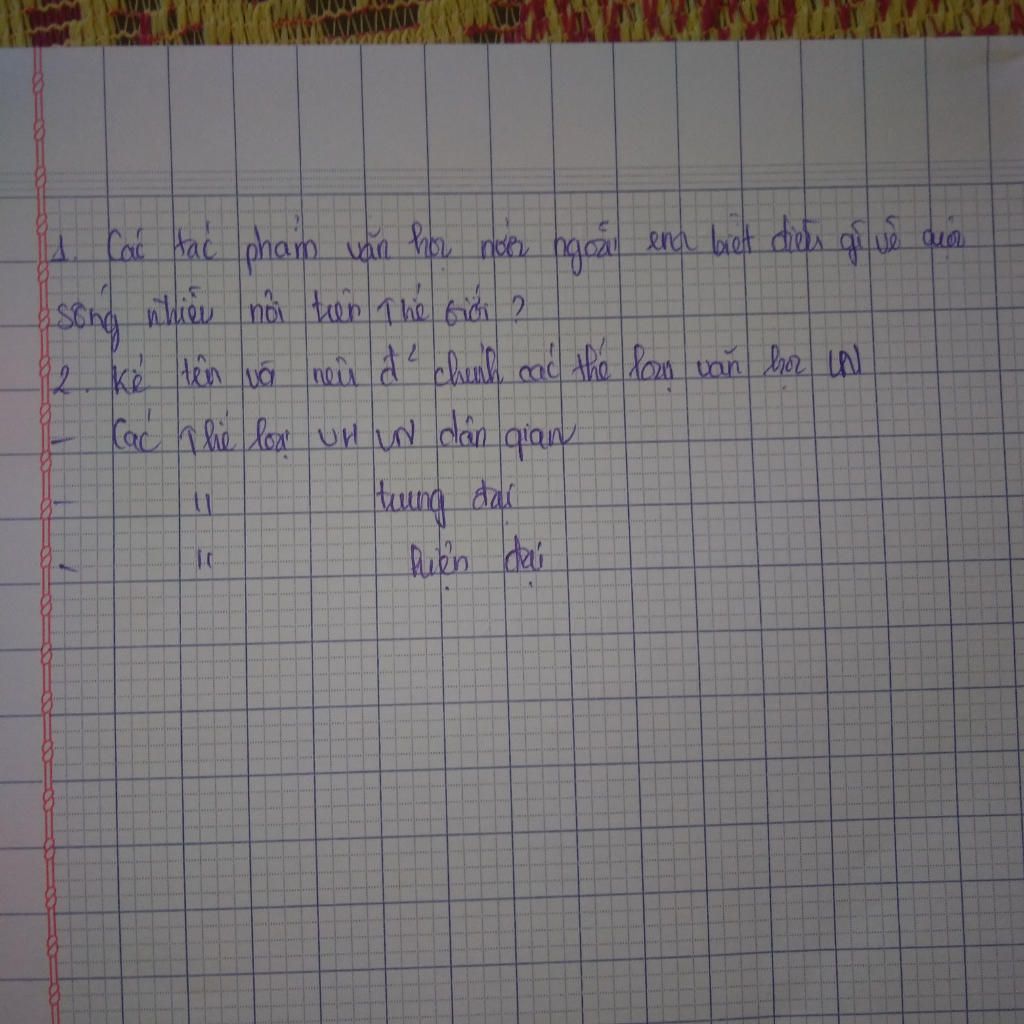 1. Các tác phẩm văn học nước ngoài em biết điều gì về cuộc
sống nhiều nơi trên Thế Giới ?
2. Kể tên và nêu đ² chính các thể loại văn học VN
- Các Thể loại VH VN dân gian
- " trung đại
- " hiện đại